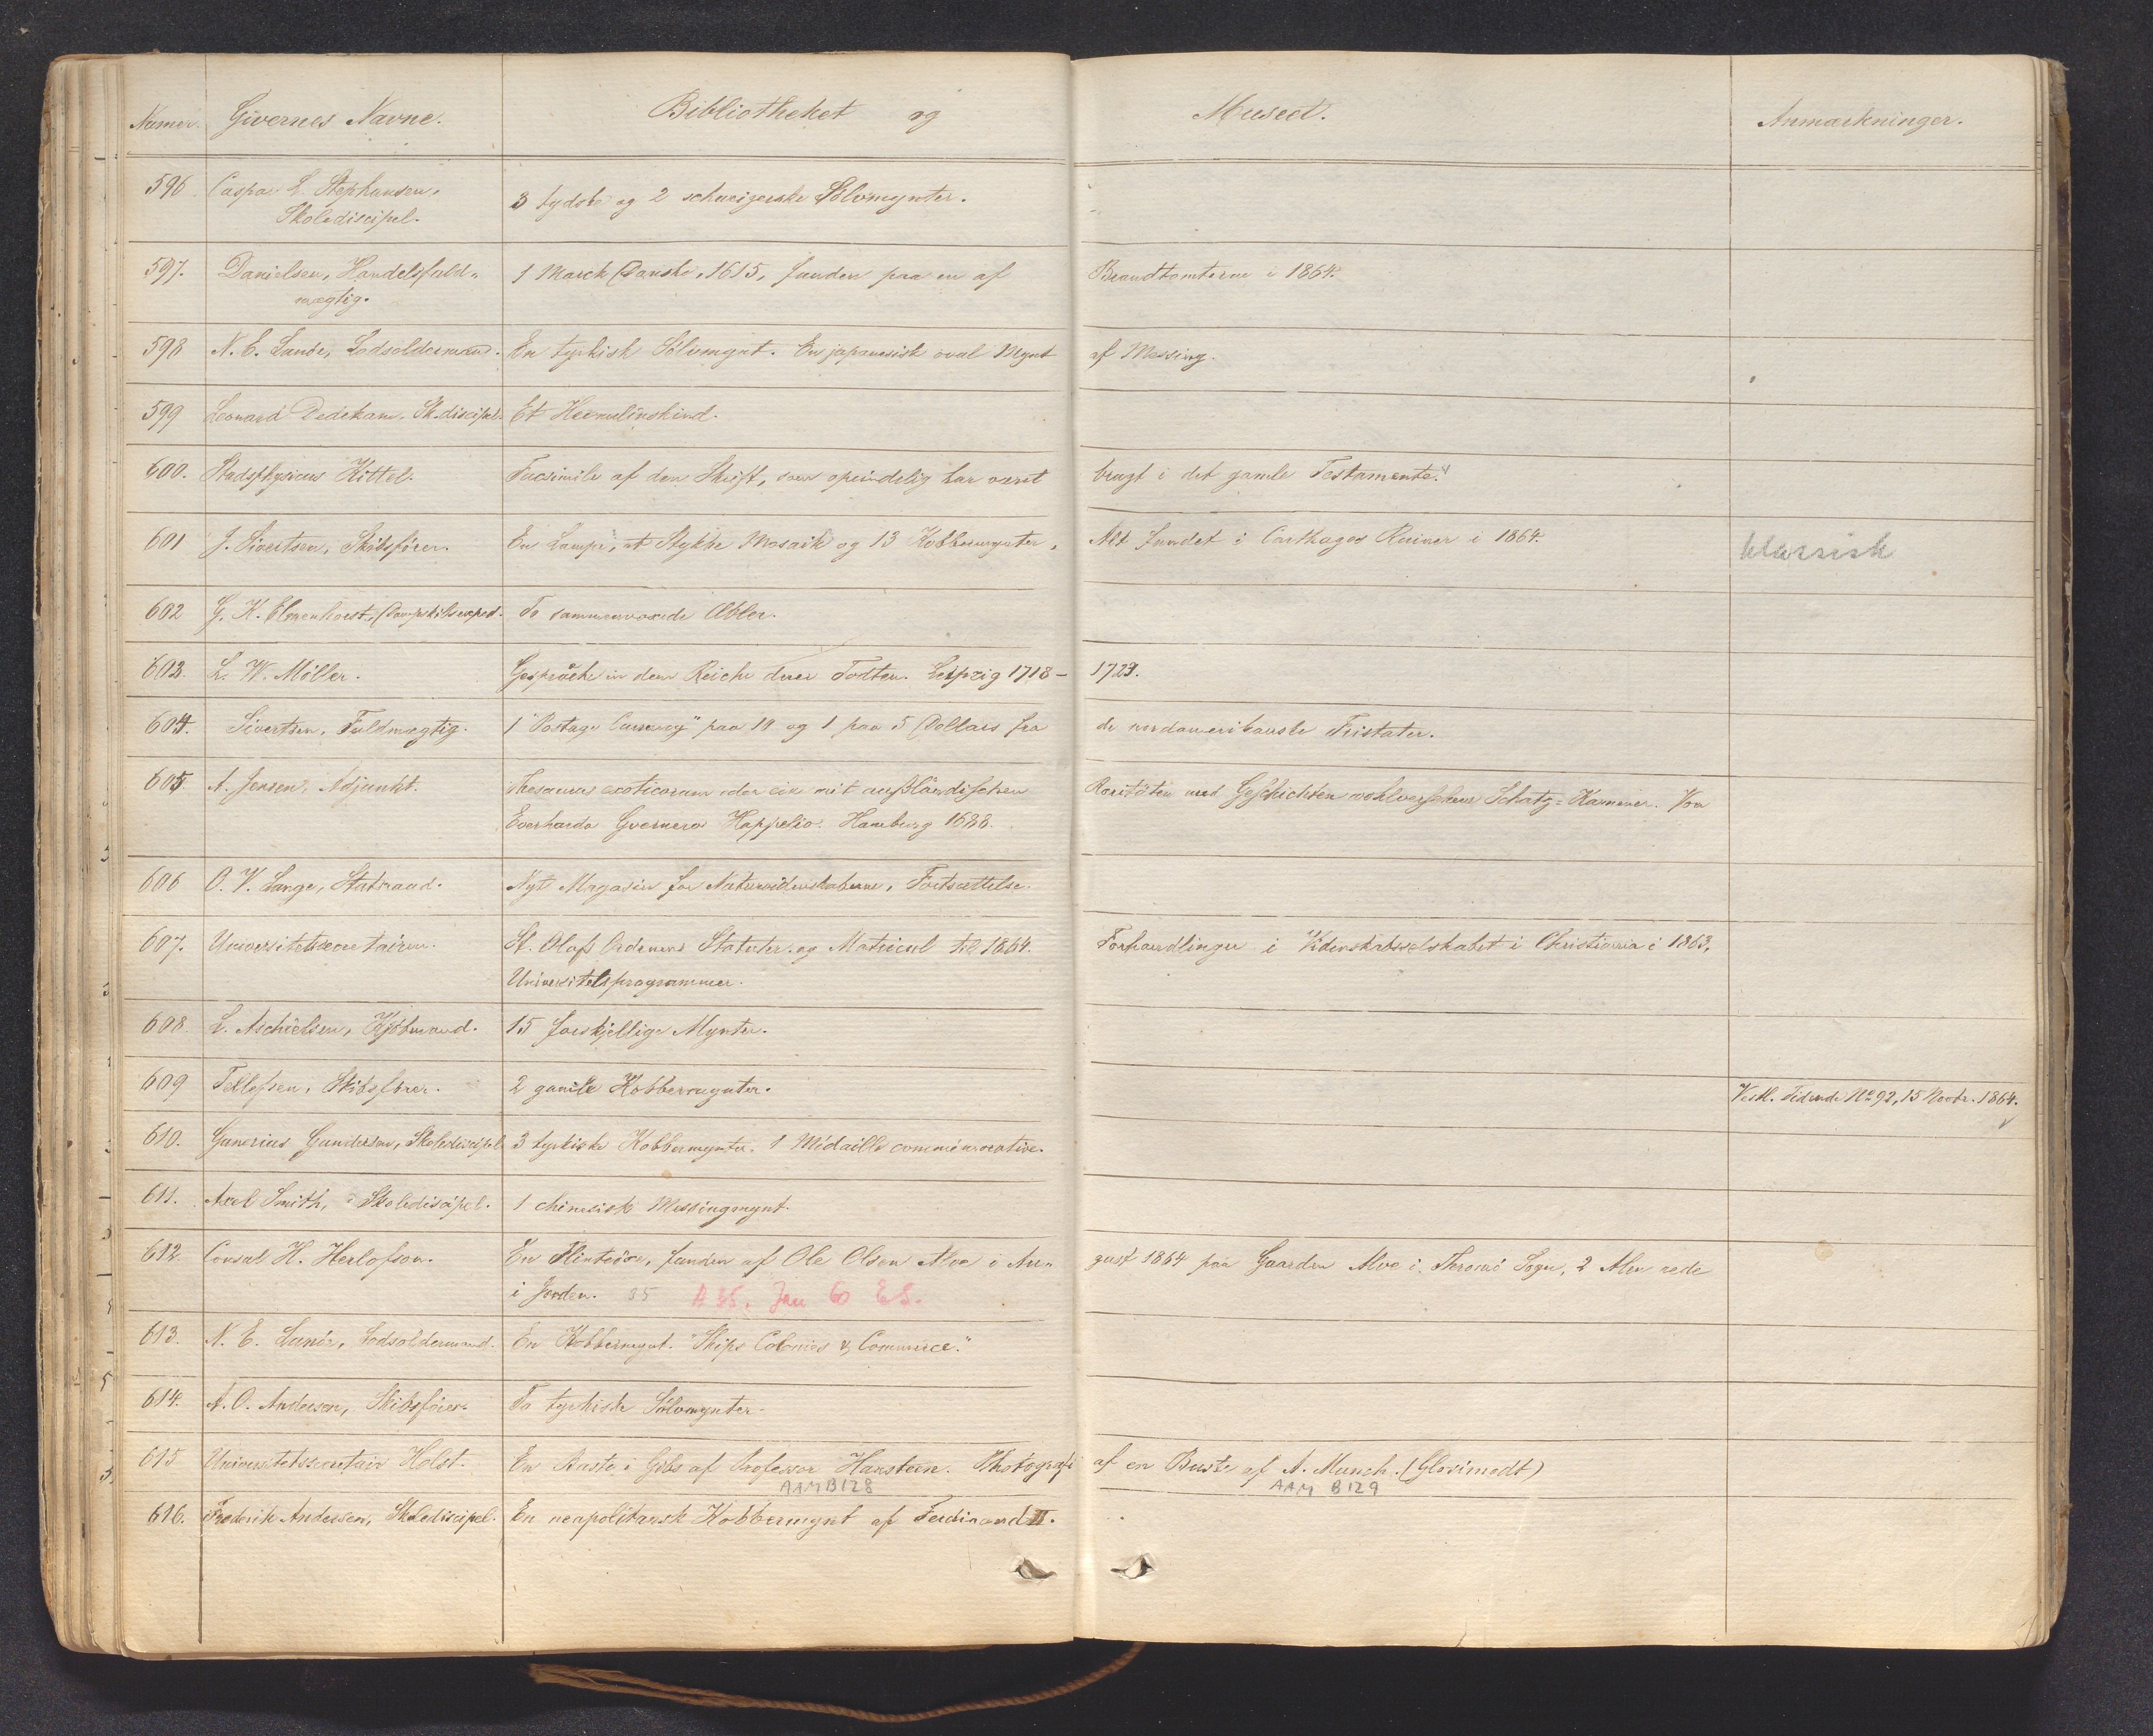 Numer. Givernes Navne. Bibliotheket og Museet. Anmærkninger.
596. Caspar L. Stephansen, 3 tydske og 2 schweizerske Sölvmynter.
Skolediscipel.
597. Danielsen, Handelsfuld- 1 Marck Danske, 1615, funden paa en af Brandtomterne i 1864.
mægtig.
598 N. E. Lunde, Lodsoldermand. En tyrkisk Sölvmynt. En japanesisk oval Mynt af Messing.
599 Leonard Dedekam, Sk.discipel. Et Hermelinskind.
600. Stadsphysicus Kittel. Facsimile af den Skrift, som oprindelig har været brugt i det gamle Testamente.
601 J. Sivertsen, Skibsförer. En Lampe, et Stykke Mosaik og 13 Kobbermynter, Alt fundet i Carthagos Ruiner i 1864. klassisk
602 G. H. Elmenhorst, Dampskibsexped. To sammenvoxede Æbler.
603. L. W. Möller. Gespräche in dem Reiche derer Todten. Leipzig 1718- 1723.
604. Sivertsen, Fuldmægtig. 1 "Postage Currency" paa 10 og 1 paa 5 Dollars fra de nordamerikanske Fristater.
605. A. Jensen, Adjunkt. Thesaurus exoticorum oder eine mit außländischen Raritäten und Geschichten wohlversehene Schatz-Kammer. Von
Everhardo Gvernero Happelio. Hamburg 1688.
606 O. V. Lange, Statsraad. Nyt Magasin for Naturvidenskaberne, Fortsættelse.
607. Universitetssecretairen. St. Olafs Ordenens Statuter og Matricul til 1864. Forhandlinger i Videnskabsselskabet i Christiania i 1863,
Universitetsprogrammer.
608. L. Aschielsen, Kjöbmand. 15 forskjellige Mynter.
609 Tellefsen, Skibsförer. 2 gamle Kobbermynter. Vestl. Tidende No 92, 15 Novbr. 1864.
610. Gunerius Gundersen, Skolediscipel 3 tyrkiske Kobbermynter. 1 Médaille commémorative.
611. Axel Smith, Skolediscipel. 1 chinesisk Messingmynt.
612. Consul H. Herlofson. En Flintöxe, funden af Ole Olsen Alve i Au- gust 1864 paa Gaarden Alve i Tromö Sogn, 2 Alen nede
i Jorden. 35 A 35. Jan 60 ES.
613. N. E. Lunde, Lodsoldermand. En Kobbermynt. "Ships Colonies & Commerce."
614. A. O. Andersen, Skibsförer. To tyrkiske Sölvmynter.
615 Universitetssecretair Holst. En Buste i Gibs af Professor Hansteen. Photografi af en Buste af A. Munch. (Glosimodt)
AAM B128 AAM B129
616. Frederik Andersen, Skolediscipel. En neapolitansk Kobbermynt af Ferdinand II.